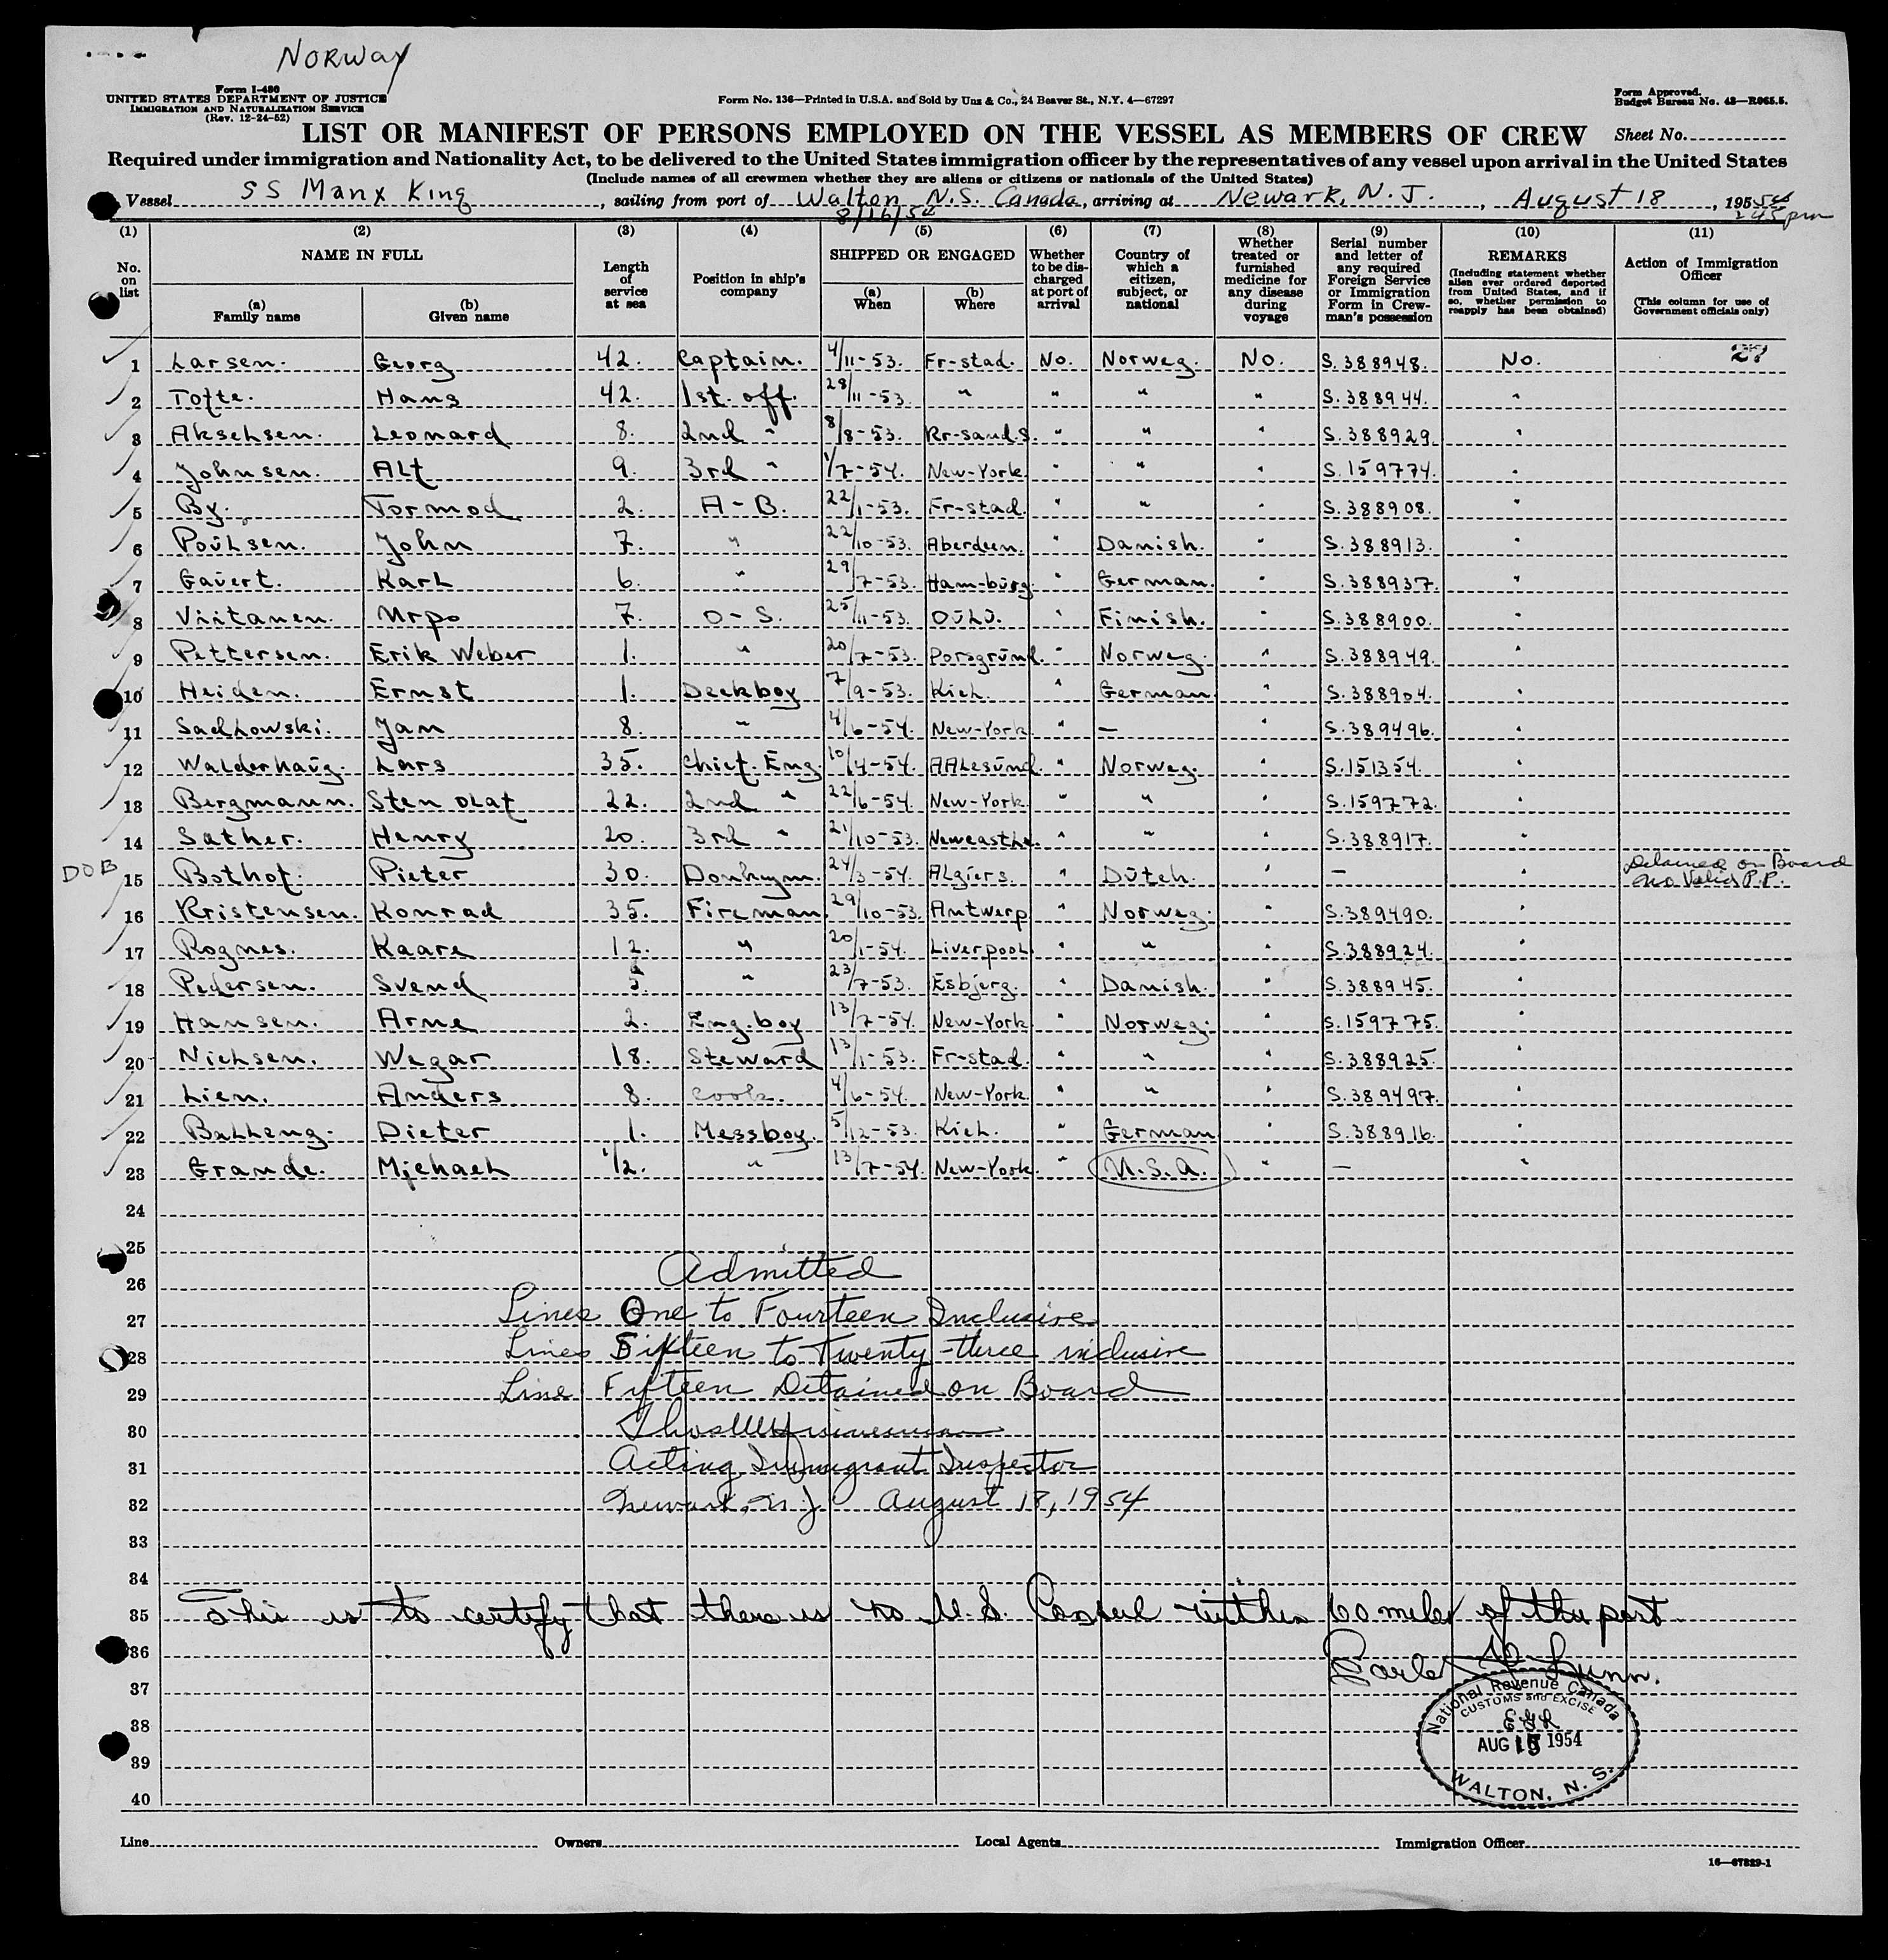 Norway
Form I-480
UNITED STATES DEPARTMENT OF JUSTICE
IMMIGRATION AND NATURALIZATION SERVICE
(Rev. 12-24-52)
Form No. 136—Printed in U.S.A. and Sold by Unz & Co., 24 Beaver St., N.Y. 4—67297
Form Approved.
Budget Bureau No. 43—R065.5.
LIST OR MANIFEST OF PERSONS EMPLOYED ON THE VESSEL AS MEMBERS OF CREW Sheet No.
Required under immigration and Nationality Act, to be delivered to the United States immigration officer by the representatives of any vessel upon arrival in the United States
(Include names of all crewmen whether they are aliens or citizens or nationals of the United States)
Vessel SS Manx King, sailing from port of Walton, N.S. Canada, arriving at Newark, N.J., August 18, 195 54
8/16/54 2 45 pm
(1) (2) (3) (4) (5) (6) (7) (8) (9) (10) (11)
No. on list
NAME IN FULL
(a) Family name
(b) Given name
Length of service at sea
Position in ship's company
SHIPPED OR ENGAGED
(a) When
(b) Where
Whether to be discharged at port of arrival
Country of which a citizen, subject, or national
Whether treated or furnished medicine for any disease during voyage
Serial number and letter of any required Foreign Service or Immigration Form in Crewman's possession
REMARKS
(Including statement whether alien ever ordered deported from United States, and if so, whether permission to reapply has been obtained)
Action of Immigration Officer
(This column for use of Government officials only)
1 Larsen. Georg 42. Captain. 4/11-53. Fr-stad. No. Norweg. No. S.388948. No. 27
2 Tofte. Hans 42. 1st. off. 28/11-53. " " " " S.388944. "
3 Akselsen. Leonard 8. 2nd " 8/8-53. Kr-sand.S. " " " S.388929. "
4 Johnsen. Alf 9. 3rd " 1/7-54. New-York. " " " S.159774. "
5 By. Tormod 2. A-B. 22/1-53. Fr-stad. " " " S.388908. "
6 Poulsen. John 7. " 22/10-53. Aberdeen. " Danish. " S.388913. "
7 Gavert. Karl 6. " 29/7-53. Ham-burg. " German. " S.388937. "
8 Viitanen. Urpo 7. O-S. 25/11-53. Oulu. " Finish. " S.388900. "
9 Pettersen. Erik Weber 1. " 20/7-53. Porsgrund. " Norweg. " S.388949. "
10 Heiden. Ernst 1. Deckboy 7/9-53. Kiel. " German. " S.388904. "
11 Sadlowski. Jan 8. " 4/6-54. New-York " — " S.389496. "
12 Walderhaug. Lars 35. Chief. Eng. 10/4-54. AAlesund. " Norweg. " S.151354. "
13 Bergmann. Sten Olaf 22. 2nd " 22/6-54. New-York. " " " S.159772. "
14 Sather. Henry 20. 3rd " 21/10-53. Newcastle. " " " S.388917. "
DOB 15 Bothof. Pieter 30. Donkeym. 24/3-54. Algiers. " Dutch. " — " Detained on Board no Valid P.P.
16 Kristensen. Konrad 35. Fireman. 29/10-53. Antwerp " Norweg. " S.389490. "
17 Rognes. Kaare 12. " 20/1-54. Liverpool " " " S.388924. "
18 Pedersen. Svend 5. " 23/7-53. Esbjerg. " Danish. " S.388945. "
19 Hansen. Arne 2. Eng.boy 13/7-54. New-York " Norweg. " S.159775. "
20 Nielsen. Wegar 18. Steward 13/1-53. Fr-stad. " " " S.388925. "
21 Lien. Anders 8. Cook. 4/6-54. New-York. " " " S.389497. "
22 Balleng. Dieter 1. Messboy. 5/12-53. Kiel. " German " S.388916. "
23 Grande. Michael 1/2. " 13/7-54. New-York. " U.S.A. " — "
24
25
26 Admitted
27 Lines One to Fourteen Inclusive
28 Lines Fifteen to Twenty-three inclusive
29 Line Fifteen Detained on Board
30
31 Acting Immigrant Inspector
32 Newark, N.J. August 18, 1954
33
34
35 This is to certify that there is no U.S. Consul within 60 miles of this port
36 Lunn.
37
38
39
40
National Revenue Canada
CUSTOMS and EXCISE
AUG 1954
WALTON, N. S.
Line Owners Local Agents Immigration Officer
16—67829-1